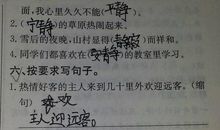 面,我心里久久不能(平静)。
(宁静)的草原热闹起来。
3. 雪后的夜晚,山村显得(静寂)而祥和。
4. 同学们都喜欢在(安静)的教室里学习。
六、按要求写句子。
1. 热情好客的主人来到几十里外欢迎远客。(缩
句)
主人迎远客。